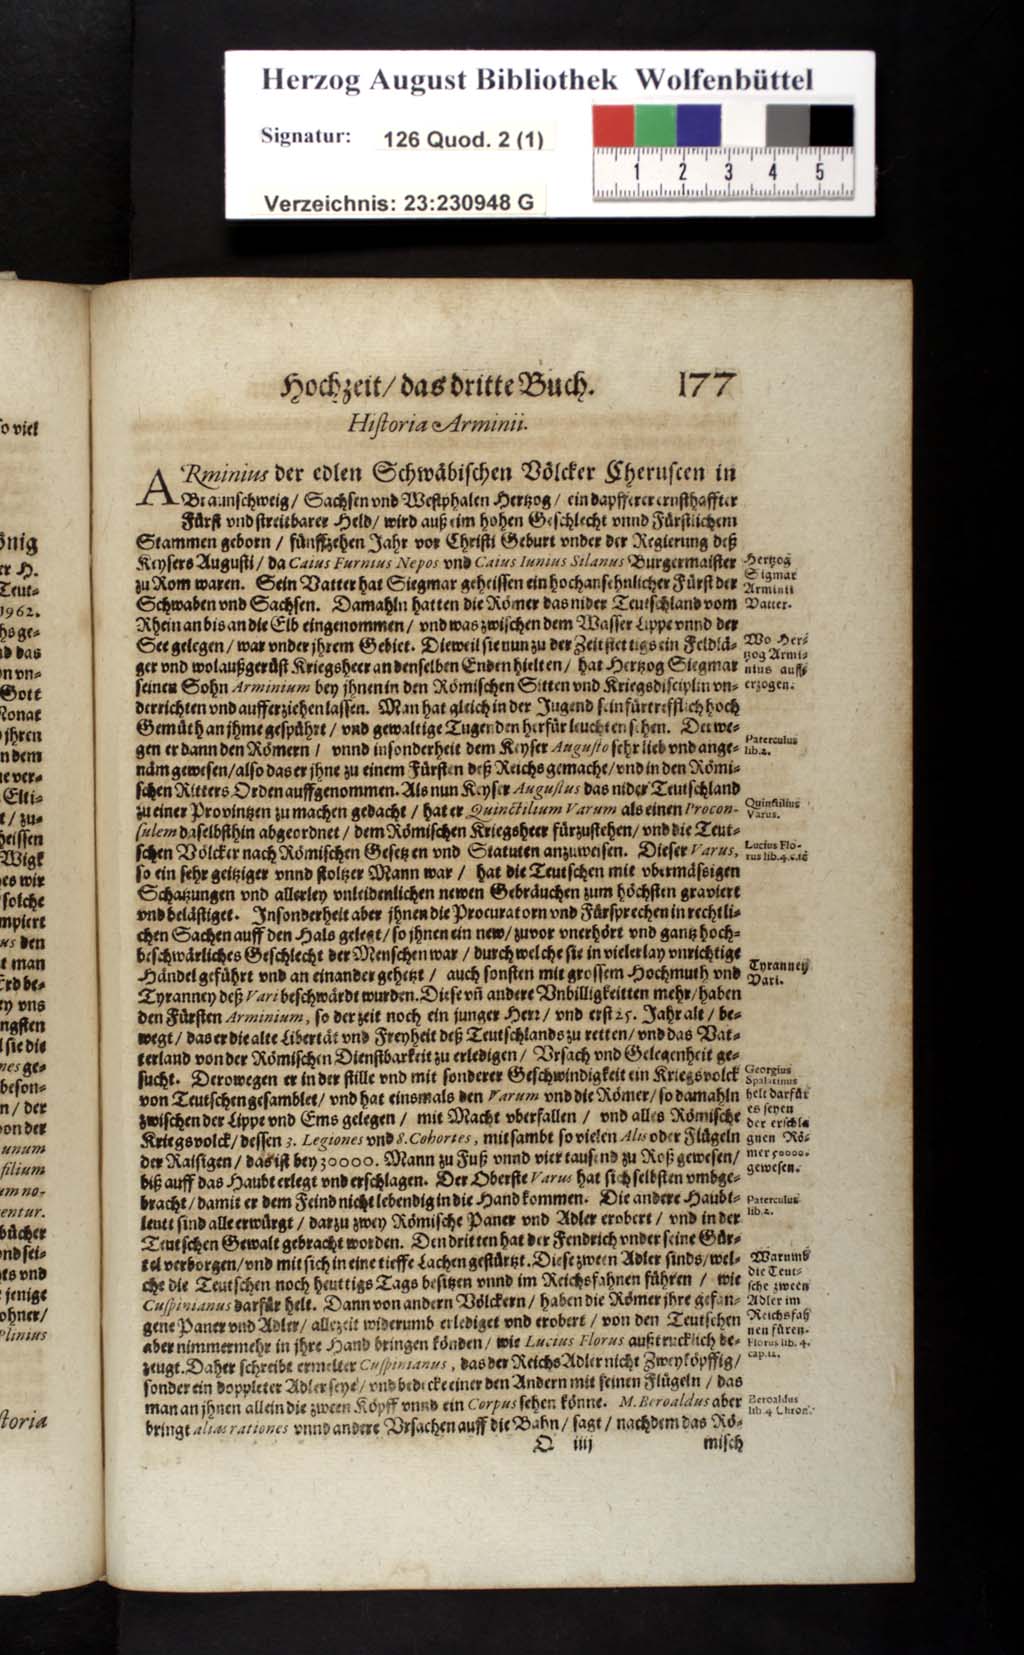 Herzog August Bibliothek Wolfenbüttel
Signatur: 126 Quod. 2 (1)
1 2 3 4 5
Verzeichnis: 23:230948 G
Hochzeit/ das dritte Buch. 177
Historia Arminii.
ARminius der edlen Schwäbischen Völcker Cheruscen in
Braunschweig/ Sachsen vnd Westphalen Hertzog/ ein dapfferer ernsthaffter
Fürst vnd streitbarer Held/ wird auß eim hohen Geschlecht vnnd Fürstlichem
Stammen geborn/ fünffzehen Jahr vor Christi Geburt vnder der Regierung deß
Keysers Augusti/ da Caius Furnius Nepos vnd Caius Iunius Silanus Burgermaister
zu Rom waren. Sein Vatter hat Siegmar geheissen ein hochansehnlicher Fürst der
Schwaben vnd Sachsen. Damahln hatten die Römer das nider Teutschland vom
Rhein an bis an die Elb eingenommen/ vnd was zwischen dem Wasser Lippe vnnd der
See gelegen/ war vnder jhrem Gebiet. Dieweil sie nun zu der Zeit stettigs ein Feldlä-
ger vnd wolaußgerüst Kriegsheer an denselben Enden hielten/ hat Hertzog Siegmar
seinen Sohn Arminium bey jhnen in den Römischen Sitten vnd Kriegsdisciplin vn-
derrichten vnd aufferziehen lassen. Man hat gleich in der Jugend sein fürtrefflich hoch
Gemüth an jhme gespührt/ vnd gewaltige Tugenden herfür leuchten sehen. Derwe-
gen er dann den Römern/ vnnd insonderheit dem Keyser Augusto sehr lieb vnd ange-
näm gewesen/ also das er jhne zu einem Fürsten deß Reichs gemacht/ vnd in den Römi-
schen Ritters Orden auffgenommen. Als nun Keyser Augustus das nider Teutschland
zu einer Provintzen zu machen gedacht/ hat er Quinctilium Varum als einen Procon-
sulem daselbsthin abgeordnet/ dem Römischen Kriegsheer fürzustehen/ vnd die Teut-
schen Völcker nach Römischen Gesetzen vnd Statuten anzuweisen. Dieser Varus,
so ein sehr geitziger vnnd stoltzer Mann war/ hat die Teutschen mit vbermässigen
Schatzungen vnd allerley vnleidenlichen newen Gebräuchen zum höchsten graviert
vnd belästiget. Insonderheit aber jhnen die Procuratorn vnd Fürsprechen in rechtli-
chen Sachen auff den Hals gelegt/ so jhnen ein new/ zuvor vnerhört vnd gantz hoch-
beschwärliches Geschlecht der Menschen war/ durch welche sie in vielerlay vnrichtige
Händel geführt vnd an einander gehetzt/ auch sonsten mit grossem Hochmuth vnd
Tyranney deß Vari beschwärdt wurden. Diese vñ andere Vnbilligkeitten mehr/ haben
den Fürsten Arminium, so der zeit noch ein junger Herr/ vnd erst 25. Jahr alt/ be-
wegt/ das er die alte Libertät vnd Freyheit deß Teutschlands zu retten/ vnd das Vat-
terland von der Römischen Dienstbarkeit zu erledigen/ Vrsach vnd Gelegenheit ge-
sucht. Derowegen er in der stille vnd mit sonderer Geschwindigkeit ein Kriegsvolck
von Teutschen gesamblet/ vnd hat einsmals den Varum vnd die Römer/ so damahln
zwischen der Lippe vnd Ems gelegen/ mit Macht vberfallen/ vnd alles Römische
Kriegsvolck/ dessen 3. Legiones vnd 8. Cohortes, mitsambt so vielen Alis oder Flügeln
der Raisigen/ das ist bey 30000. Mann zu Fuß vnnd vier tausend zu Roß gewesen/
biß auff das Haubt erlegt vnd erschlagen. Der Oberste Varus hat sich selbsten vmbge-
bracht/ damit er dem Feind nicht lebendig in die Hand kommen. Die andere Haubt-
leutt sind alle erwürgt/ darzu zwey Römische Paner vnd Adler erobert/ vnd in der
Teutschen Gewalt gebracht worden. Den dritten hat der Fendrich vnder seine Gür-
tel verborgen/ vnd mit sich in eine tieffe Lachen gestürtzt. Diese zween Adler sinds/ wel-
che die Teutschen noch heuttigs Tags besitzen vnnd im Reichsfahnen führen/ wie
Cuspinianus darfür helt. Dann von andern Völckern/ haben die Römer jhre gefan-
gene Paner vnd Adler/ allezeit widerumb erlediget vnd erobert/ von den Teutschen
aber nimmermehr in jhre Hand bringen könden/ wie Lucius Florus außtrucklich be-
zeugt. Daher schreibt ermelter Cuspinianus, das der Reichs Adler nicht Zweyköpffig/
sonder ein doppleter Adler seye/ vnd bedecke einer den Andern mit seinen Flügeln/ das
man an jhnen allein die zween Köpff vnnd ein Corpus sehen könne. M. Beroaldus aber
bringt alias rationes vnnd andere Vrsachen auff die Bahn/ sagt/ nachdem das Rö-
Q iiij misch
Hertzog
Sigmar
Arminii
Vatter.
Wo Her-
tzog Armi-
nius auff-
erzogen.
Paterculus
lib.2.
Quinctilius
Varus.
Lucius Flo-
rus lib.4.c.12
Tyranney
Vari.
Georgius
Spalatinus
helt darfür
es seyen
der erschla
gnen Rö-
mer 50000.
gewesen.
Paterculus
lib.2.
Warumb
die Teut-
sche zween
Adler im
Reichsfah
nen füren.
Florus lib. 4.
cap.12.
Beroaldus
lib.4 Chron.
so viel
önig
er H.
Teut-
1962.
hs ge-
nd das
on vn-
Gott
Monat
jhren
n dem
ne ver-
Elti-
t/ zu-
heissen
Wigk
es wir
solche
mpiert
us den
t man
Erd be-
ey vns
ngsten
l sie die
nes ge-
beson-
n/ der
von der
unum
filium
um no-
entur.
bücher
vnd sei-
ts vnd
e jenige
ohner/
Plinius
storia